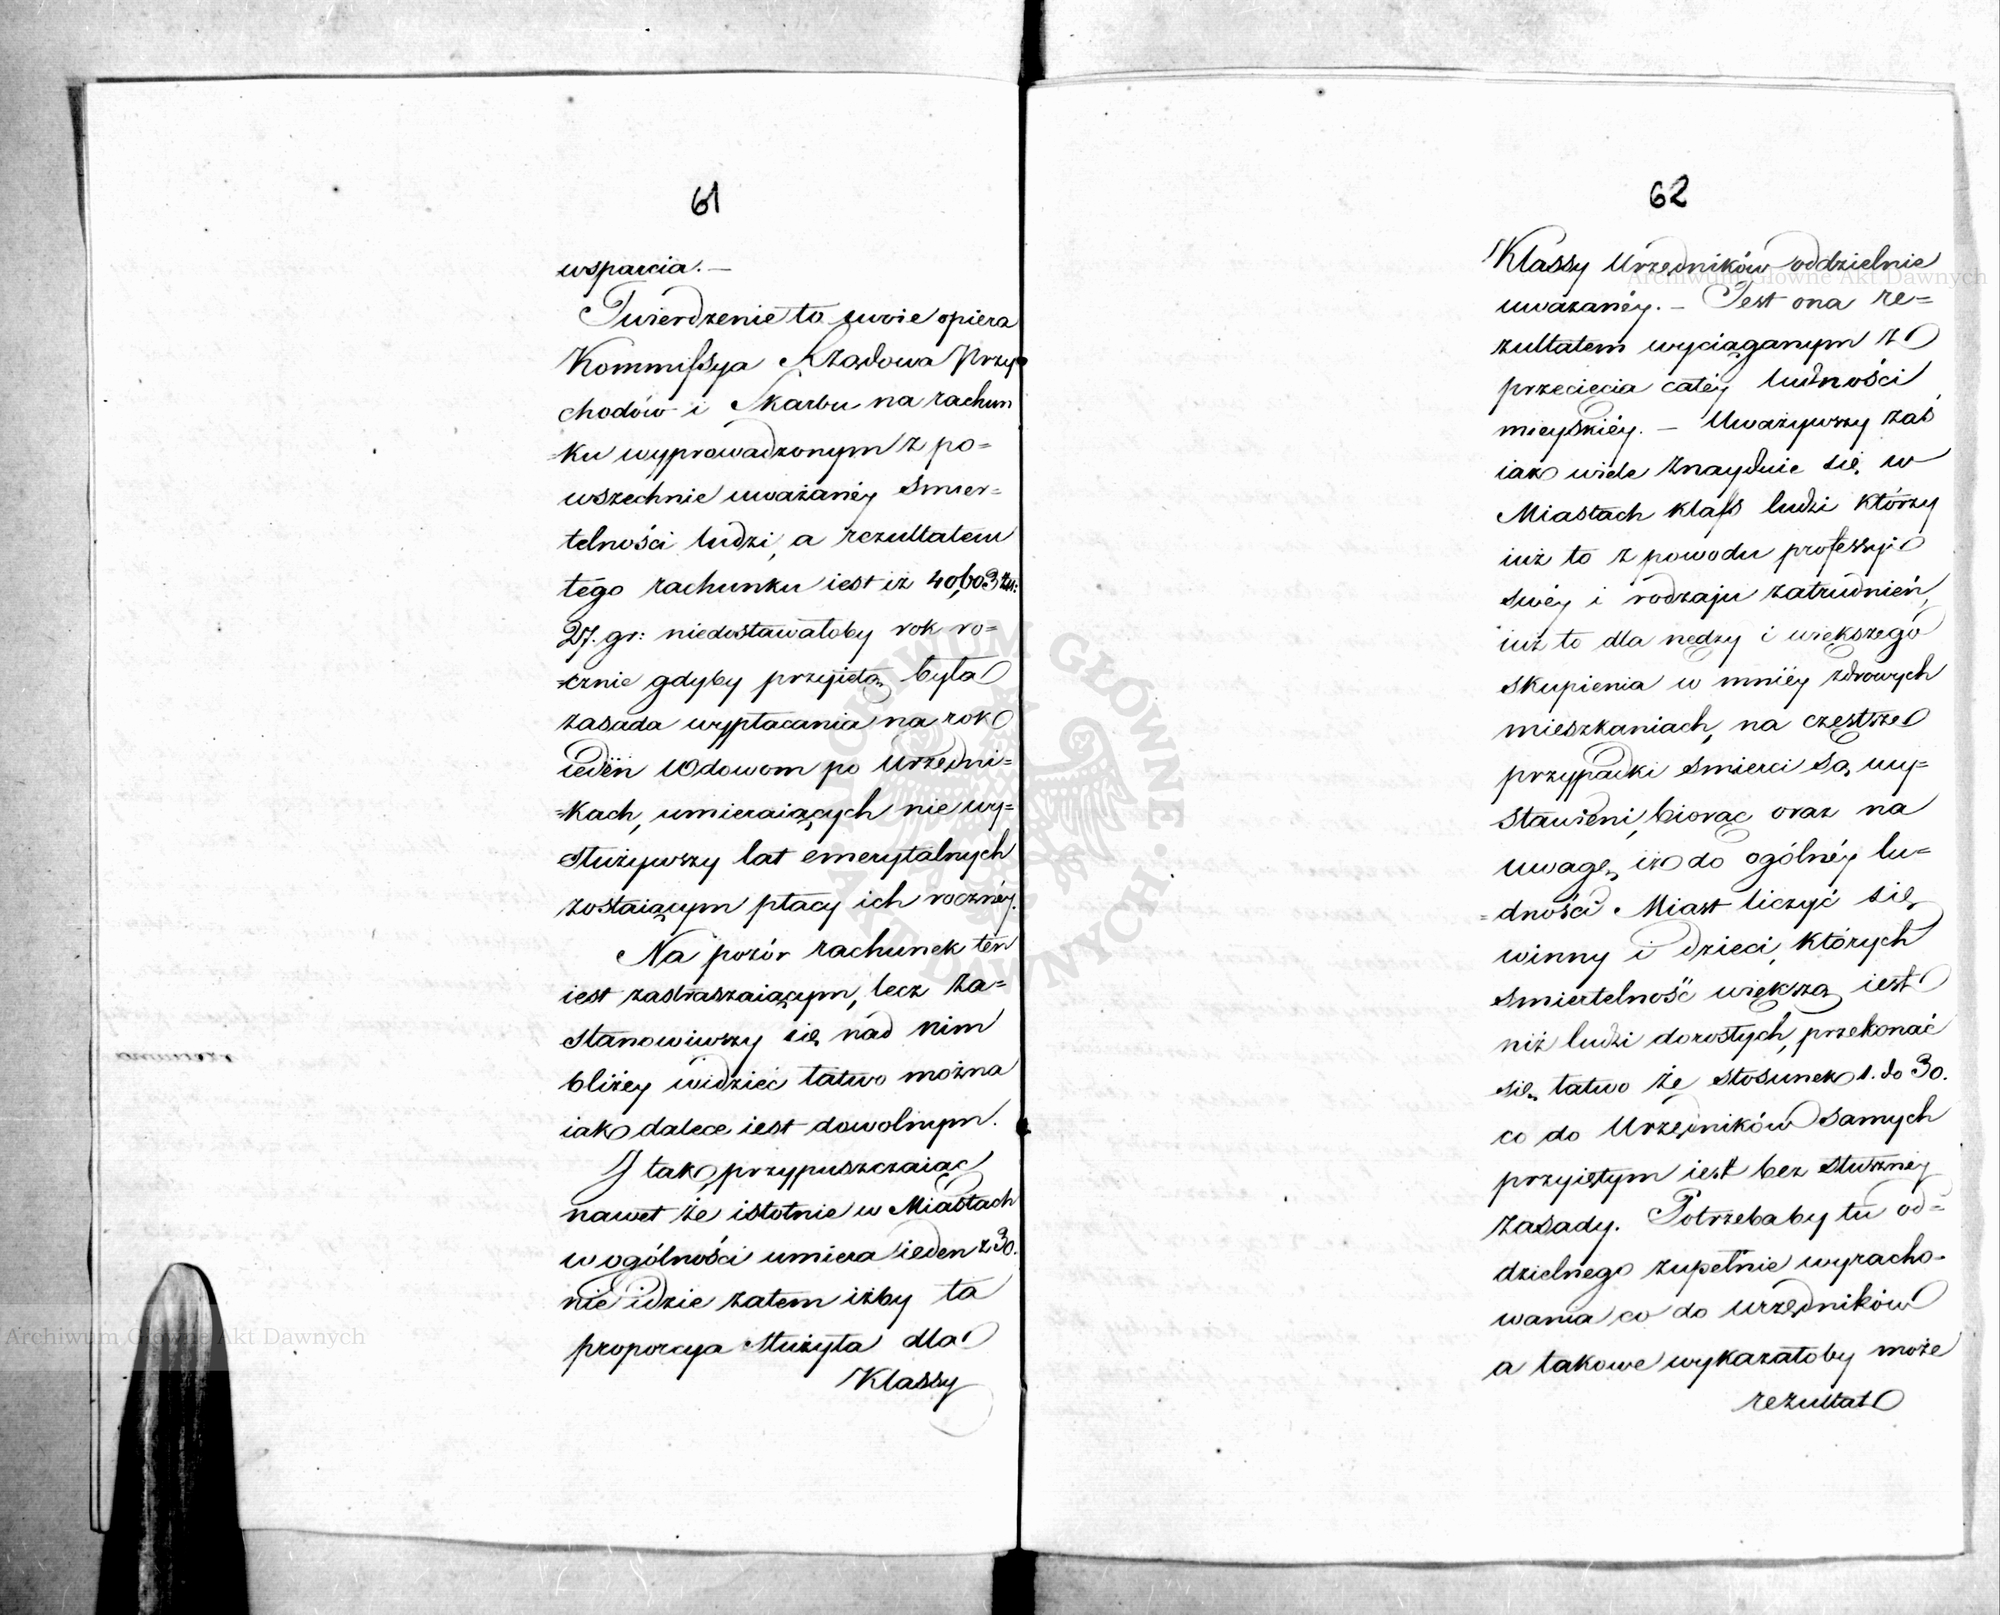 61
wsparcia. —
Twierdzenie to swoie opiera
Kommissya Rządowa Przy-
chodów i Skarbu na rachun
=ku wyprowadzonym z po=
wszechnie uważanéy śmier=
telności ludzi, a rezultatem
tego rachunku iest iż 40,603 zł:
27. gr: niedostawałoby rok ro=
=cznie gdyby przyiętą była
zasada wypłacania na rok
ieden Wdowom po Urzędni=
=kach, umieraiących nie wy=
służywszy lat emerytalnych
zostaiącym płacy ich rocznéy.
Na pozór rachunek ten
iest zastraszaiącym, lecz za=
stanowiwszy się nad nim
bliżey widzieć łatwo można
iak dalece iest dowolnym.
I tak, przypuszczaiąc
nawet że istotnie w Miastach
w ogólności umiera ieden z 30.
nie idzie zatem iżby ta
proporcya służyła dla
Klassy
62
Klassy Urzędników oddzielnie
uważanéy. — Jest ona re=
zultatem wyciąganym z
przecięcia całéy ludności
mieyskiéy. — Uważywszy zaś
iak wiele znayduie się w
Miastach klass ludzi którzy
iuż to z powodu professyi
swéy i rodzaju zatrudnień,
iuż to dla nędzy i większego
skupienia w mniéy zdrowych
mieszkaniach, na częstsze
przypadki śmierci są wy=
stawieni, biorąc oraz na
uwagę, iż do ogólnéy lu=
=dności Miast liczyć się
winny i dzieci, których
śmiertelność większą iest
niż ludzi dorosłych, przekonać
się łatwo że stosunek 1. do 30.
co do Urzędników samych
przyiętym iest bez słusznéy
zasady. Potrzebaby tu od=
dzielnego zupełnie wyracho-
wania co do urzędników
a takowe wykazałoby może
rezultat
Archiwum Główne Akt Dawnych
Archiwum Główne Akt Dawnych
ARCHIWUM GŁÓWNE AKT DAWNYCH